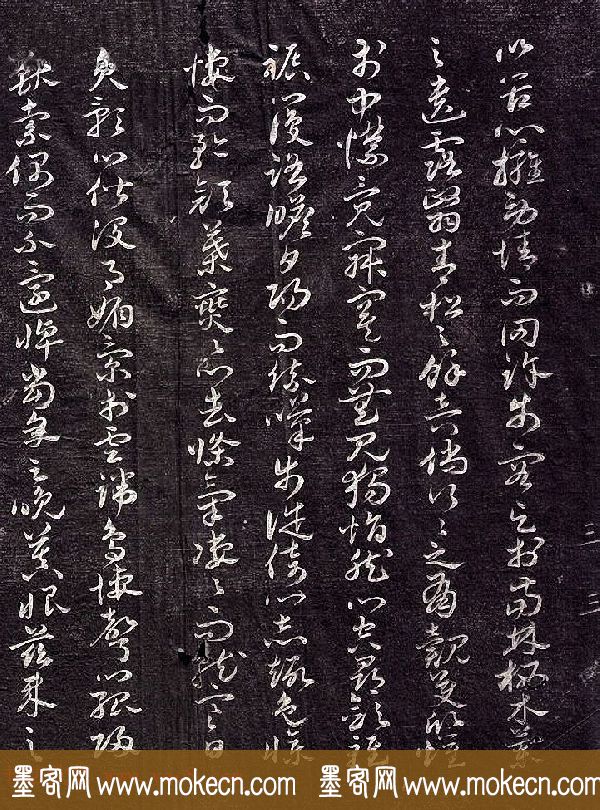 以苦心擁勞情而罔訴步容與於南林栖木蘭
之遺露翳青松之餘陰儻行行之有覿交欣懼
於中襟竟寂寞而無見獨悁想以空尋斂輕
裾以復路瞻夕陽而流嘆步徙倚以忘趣色慘
悽而矜顏葉燮燮以去條氣凄凄而就寒日
負影以偕沒月媚景於雲端鳥悽聲以孤歸
獸索偶而不還悼當年之晚暮恨茲歲之
墨客网 www.mokecn.com 墨客网 www.mokecn.com